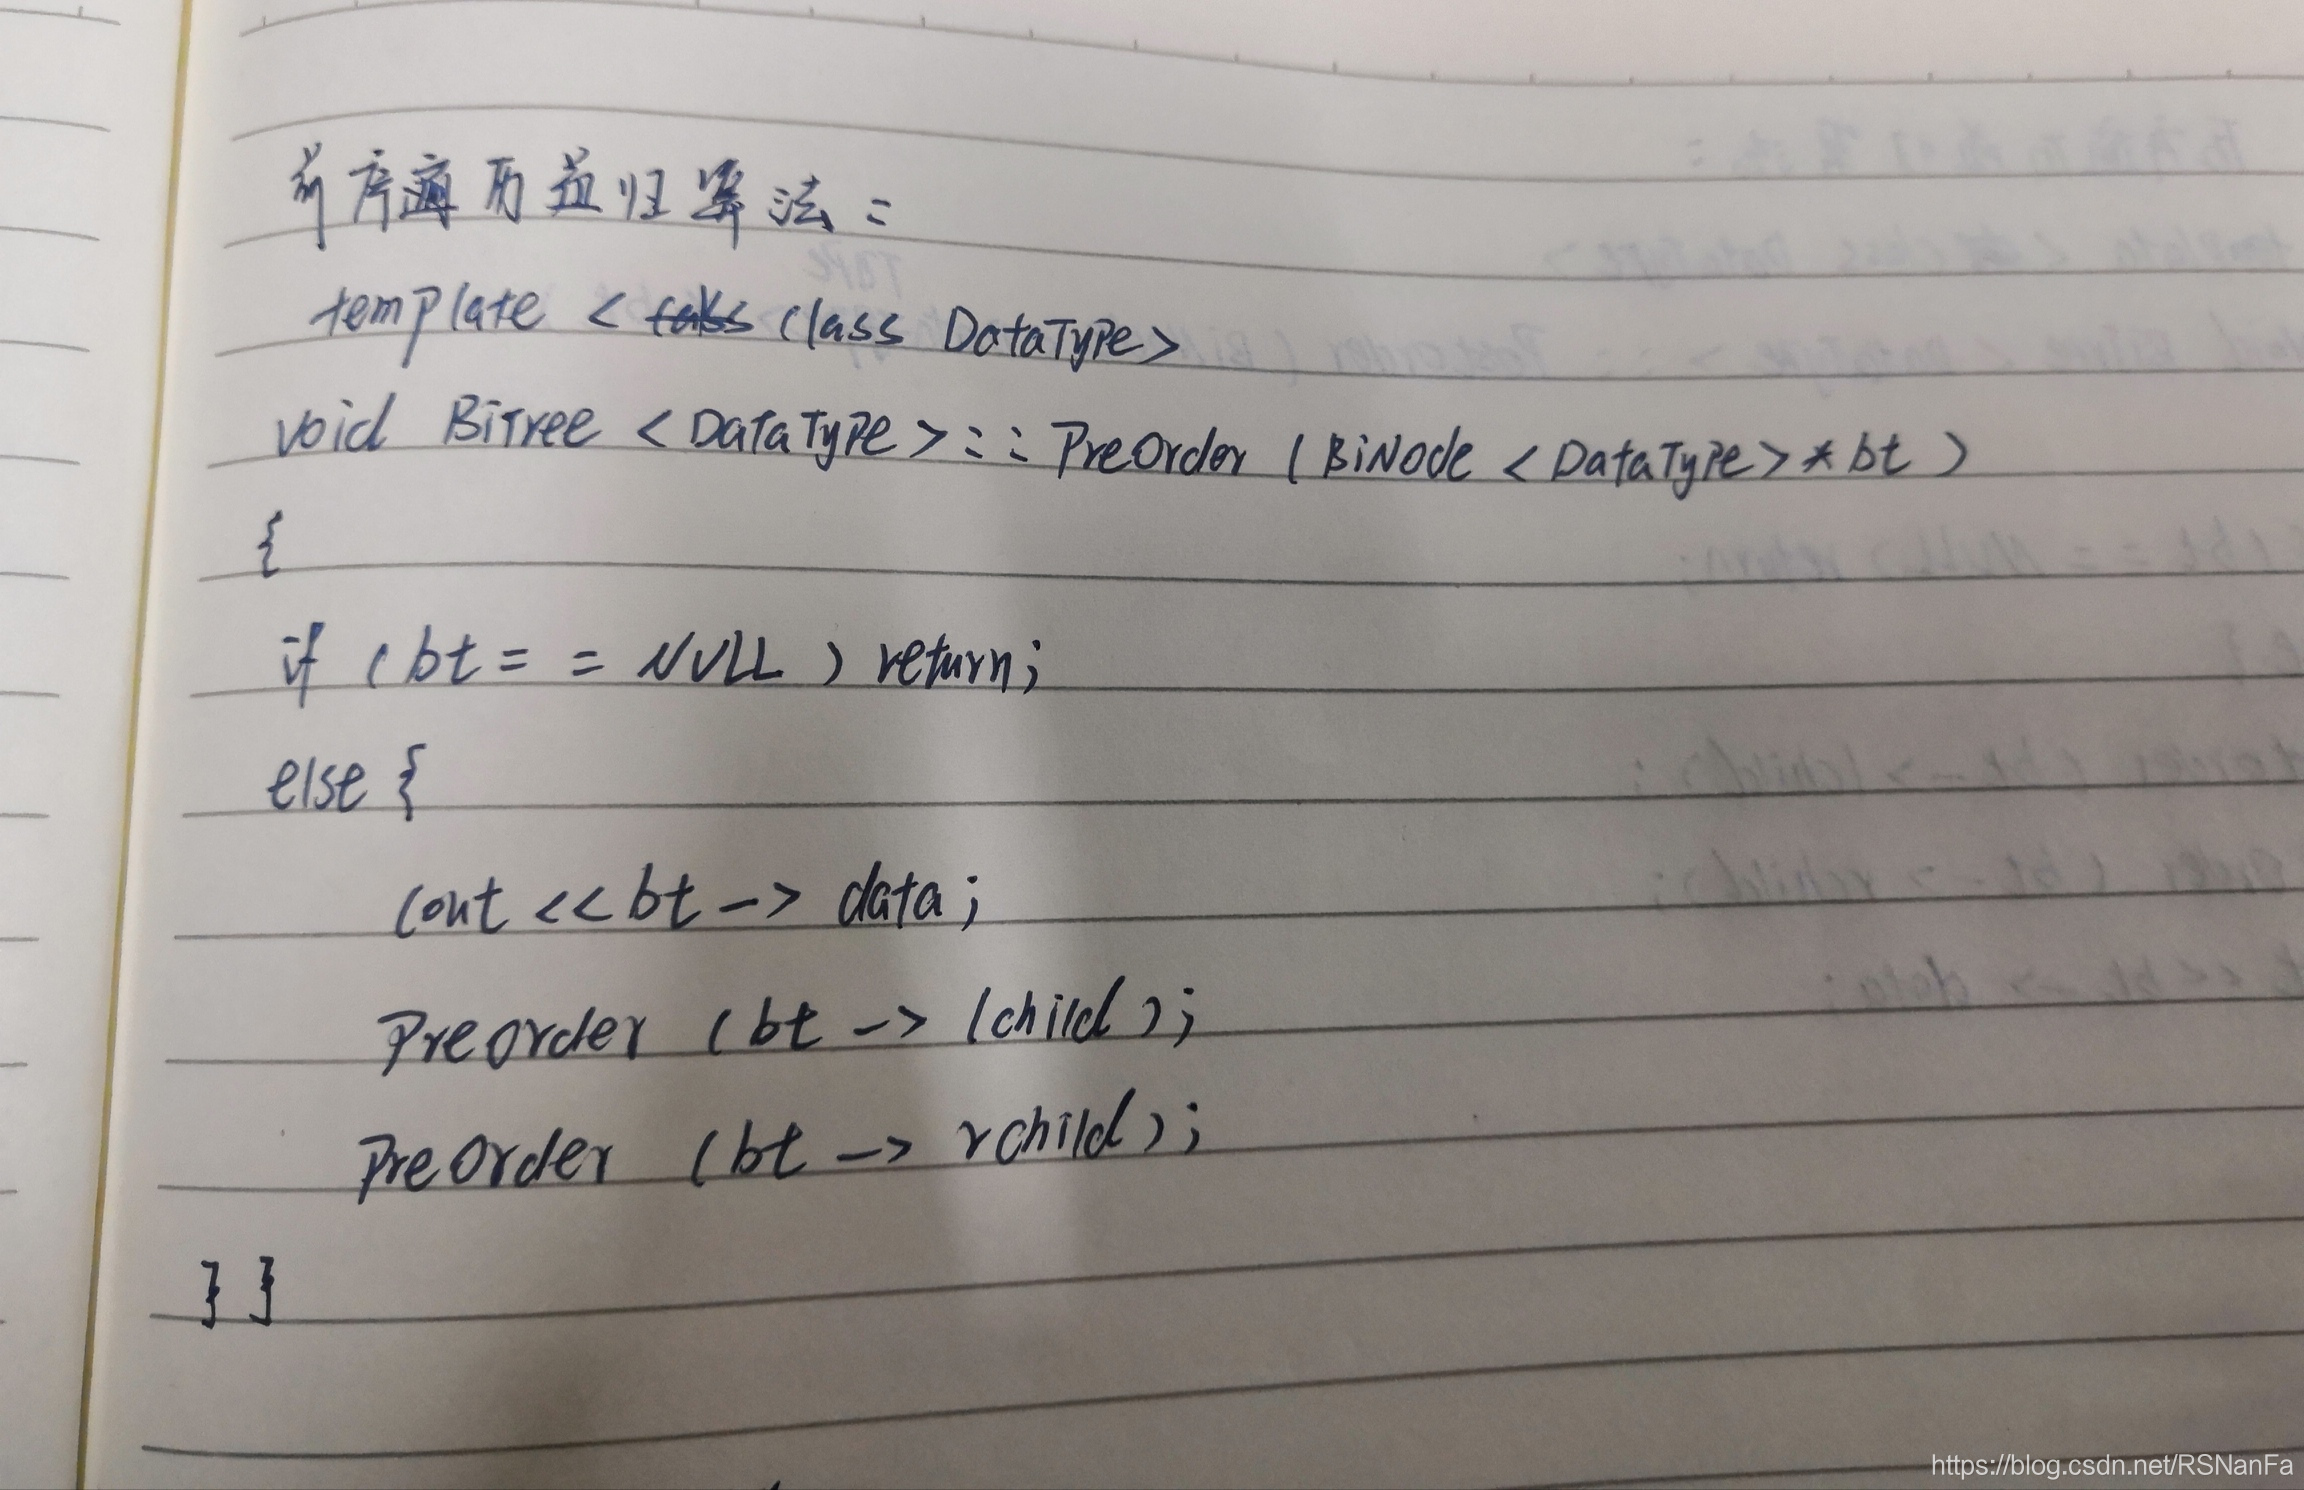 前序遍历递归算法：
template < class DataType>
void BiTree <DataType>::PreOrder (BiNode <DataType>*bt)
{
if (bt== NULL) return;
else {
cout <<bt-> data;
Preorder (bt -> lchild);
PreOrder (bt -> rchild);
} }
https://blog.csdn.net/RSNanFa